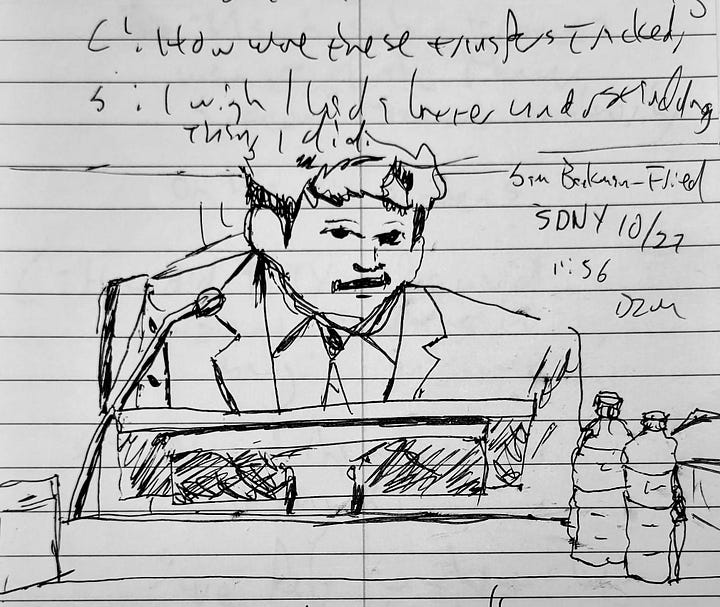 C: How were these transfers tracked,
S: I wish I had a better understanding
things I did.
Sam Bankman-Fried
SDNY 10/27
11:56